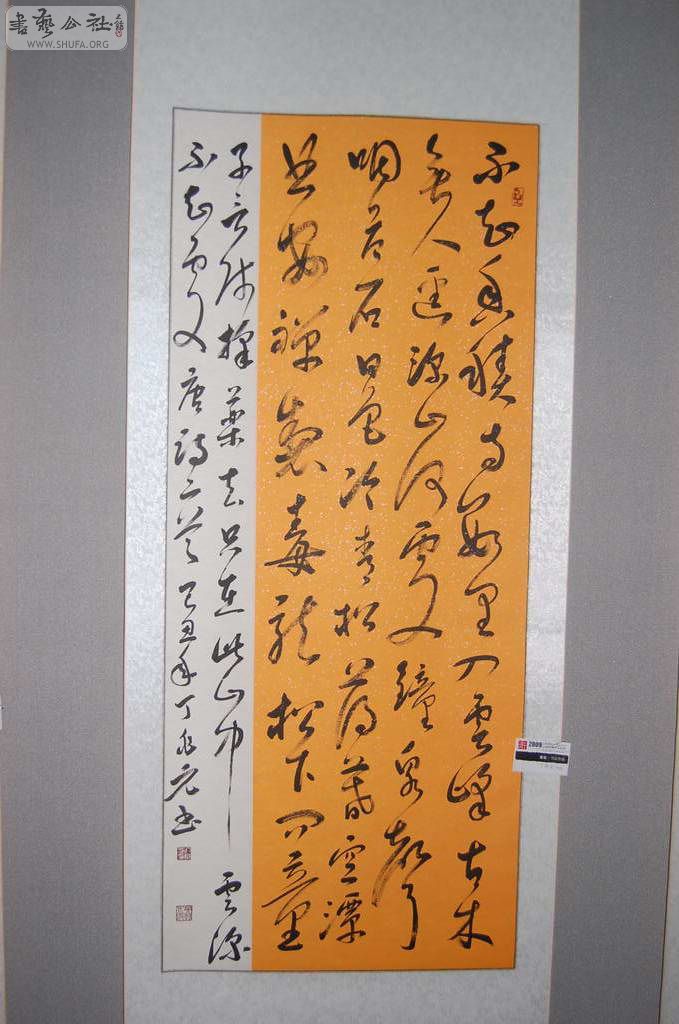 書藝公社
WWW.SHUFA.ORG
不知香積寺數里入雲峰古木
無人逕深山何處鐘泉聲
咽危石日色冷青松薄暮空潭
曲安禪製毒龍松下問童
子言師採藥去只在此山中雲深
不知處唐詩二首己丑年丁書
2009